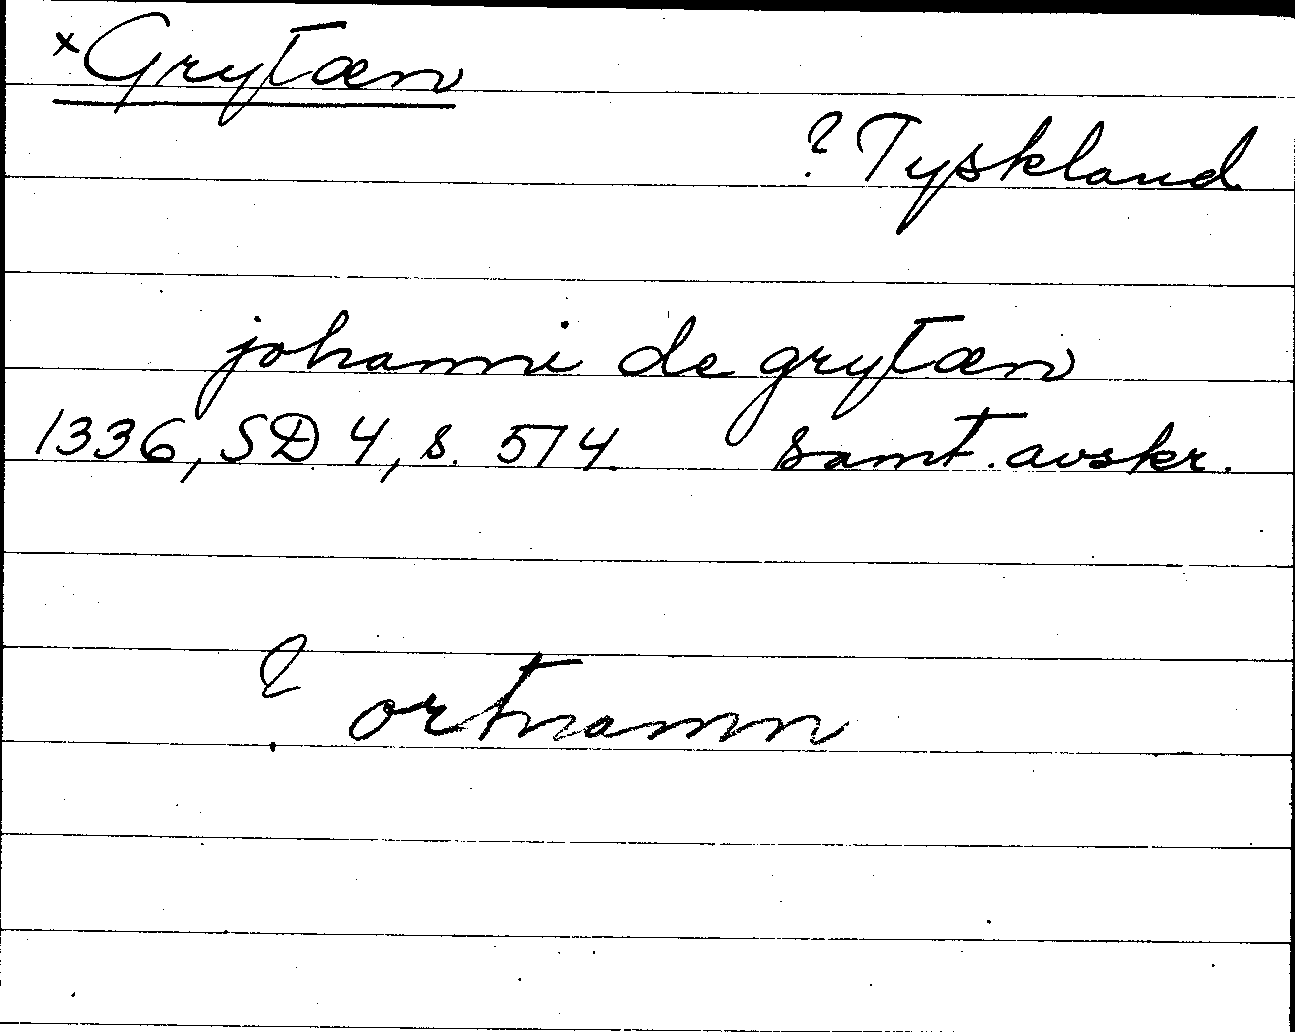 ×Grytæn
? Tyskland
johanni de grytæn
1336, SD 4, s. 514. samt. avskr.
? ortnamn